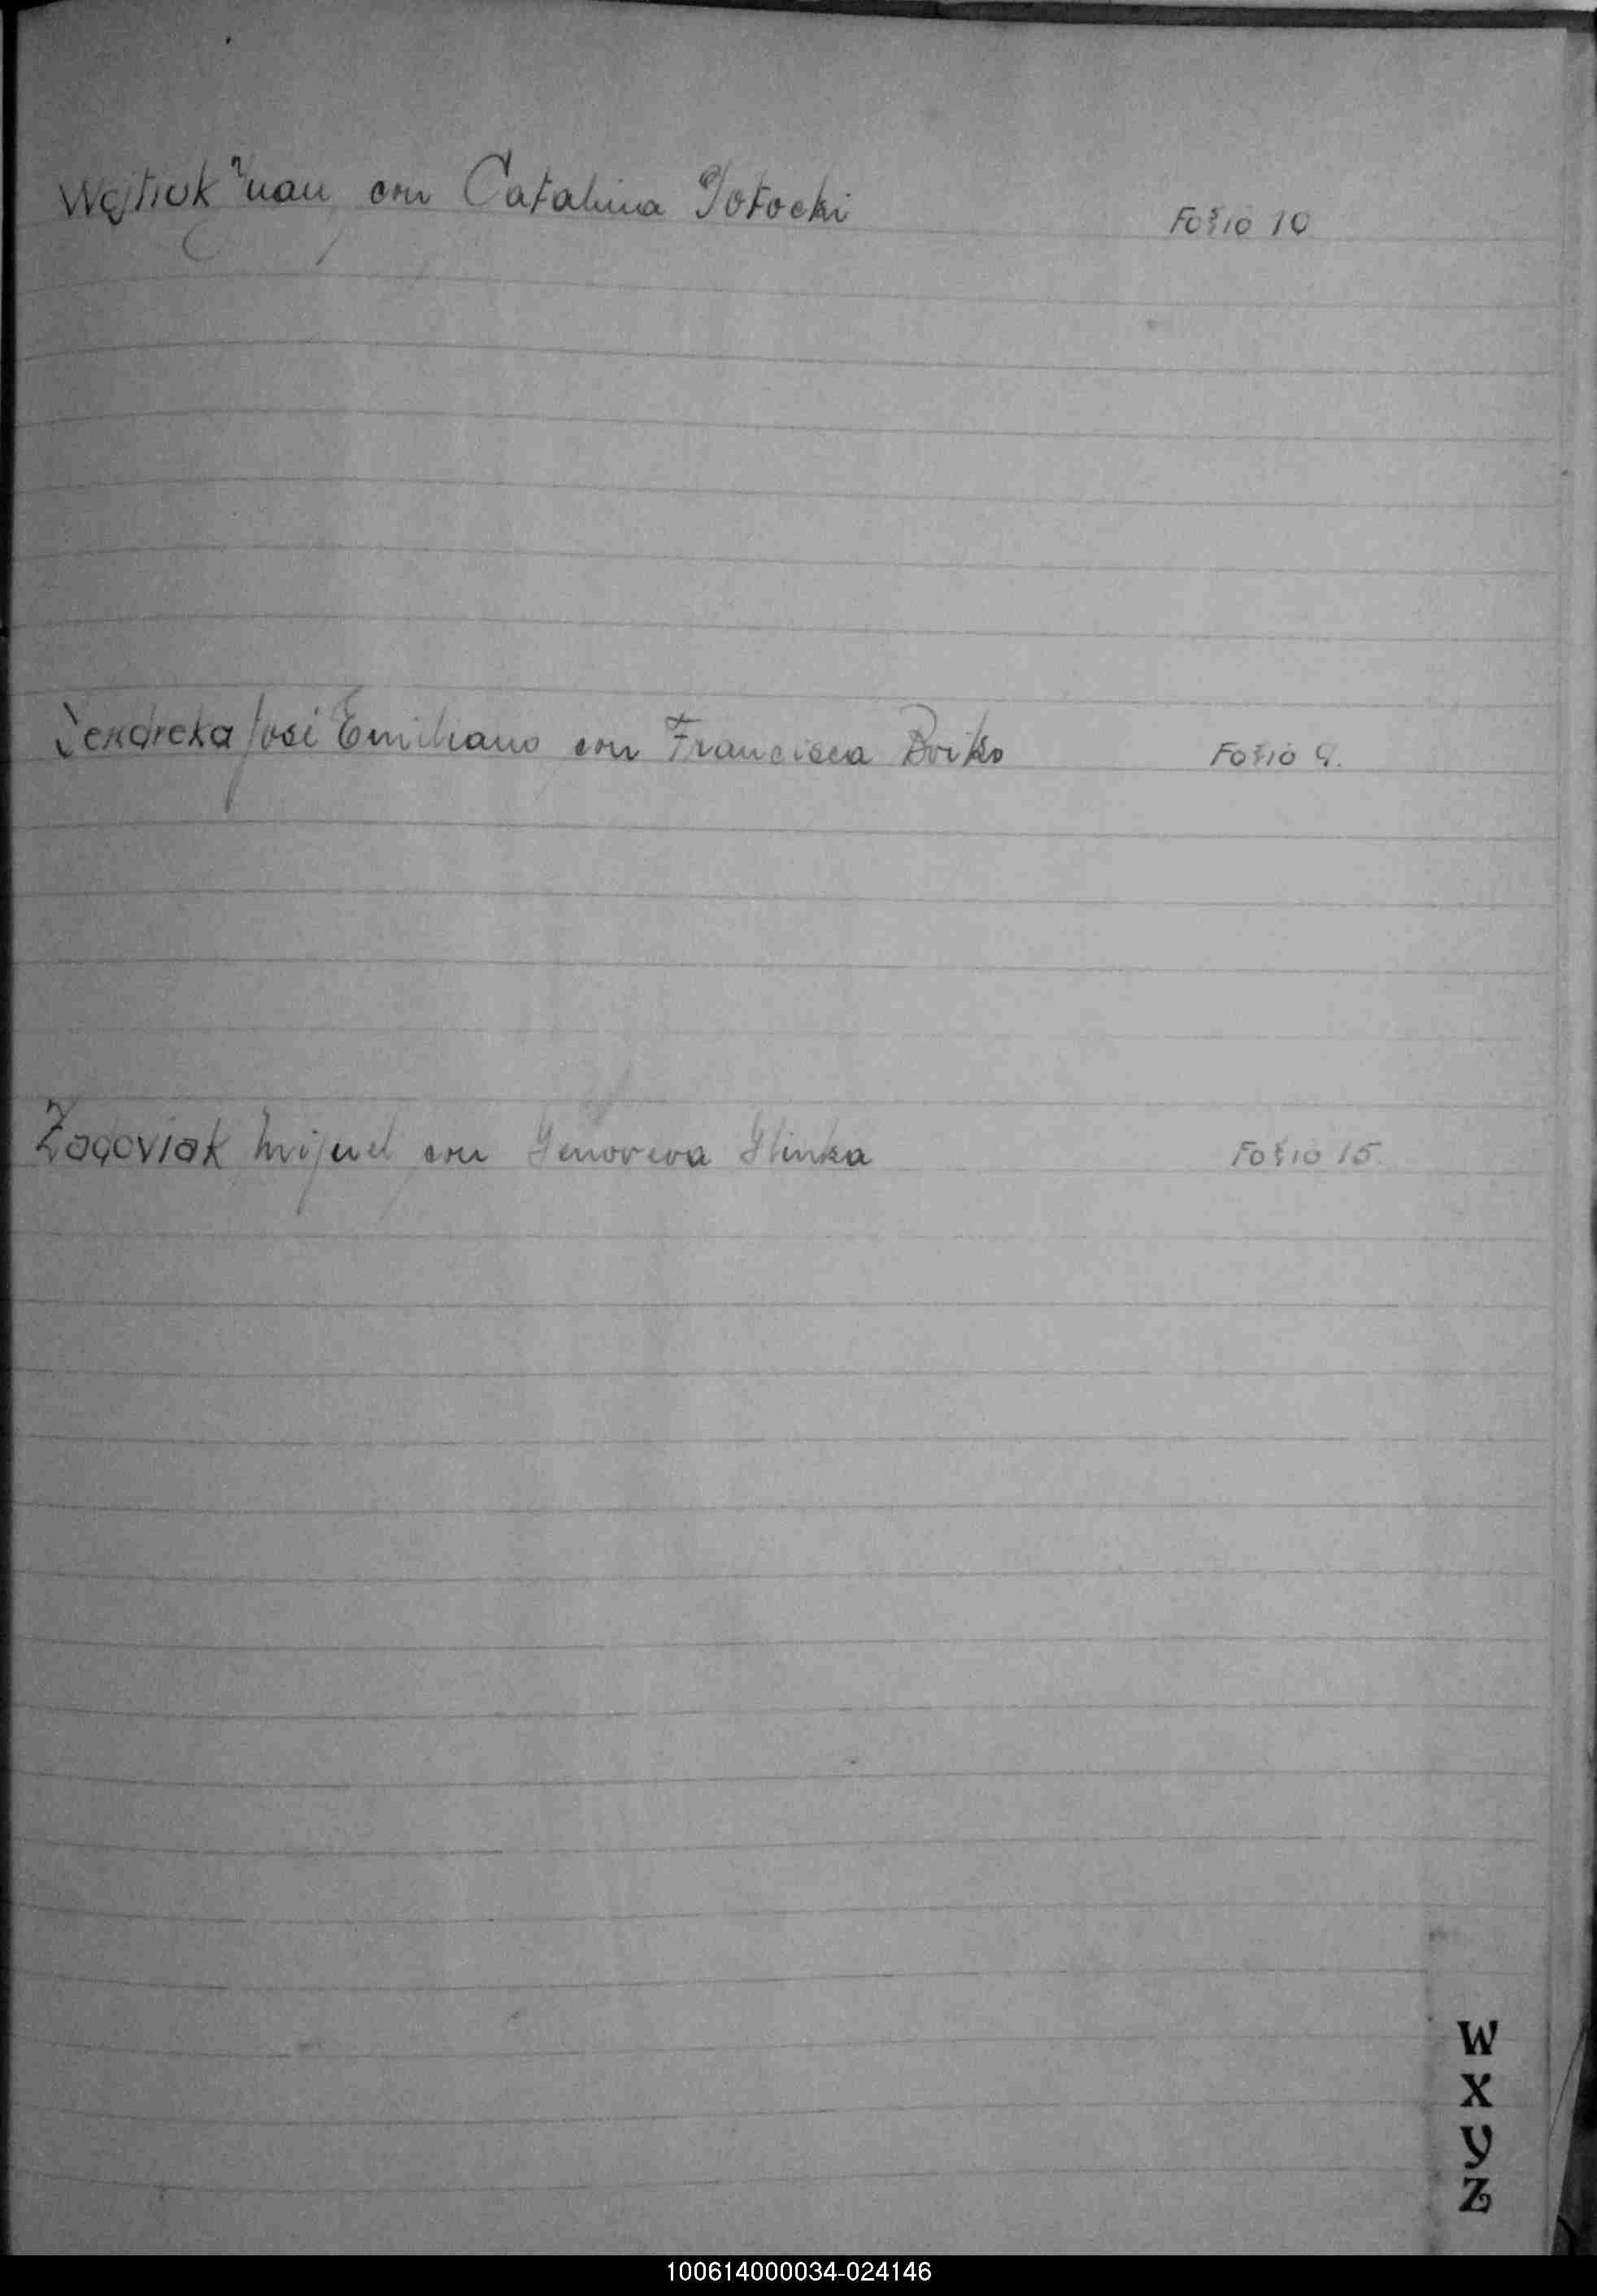 Wojtiuk Juan con Catalina Potocki Folio 10
Jendreka José Emiliano con Francisca Boiko Folio 9.
Zagoviak Miguel con Genoveva Glinka Folio 15.
W
X
Y
Z
100614000034-024146